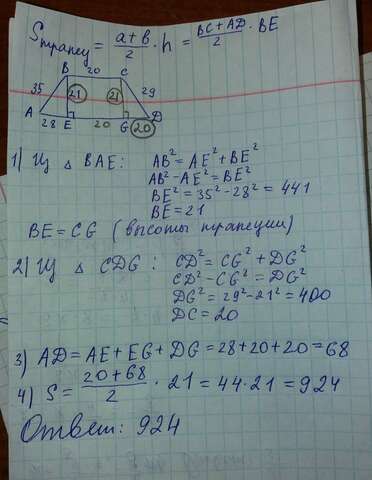 Sтрапец = (a+b)/2 · h = (BC+AD)/2 · BE
B 20 C
35 21 21 29
A 28 E 20 G 20 D
1) Из △ BAE: AB² = AE² + BE²
AB² - AE² = BE²
BE² = 35² - 28² = 441
BE = 21
BE = CG (высоты трапеции)
2) Из △ CDG: CD² = CG² + DG²
CD² - CG² = DG²
DG² = 29² - 21² = 400
DC = 20
3) AD = AE + EG + DG = 28 + 20 + 20 = 68
4) S = (20+68)/2 · 21 = 44 · 21 = 924
Ответ: 924